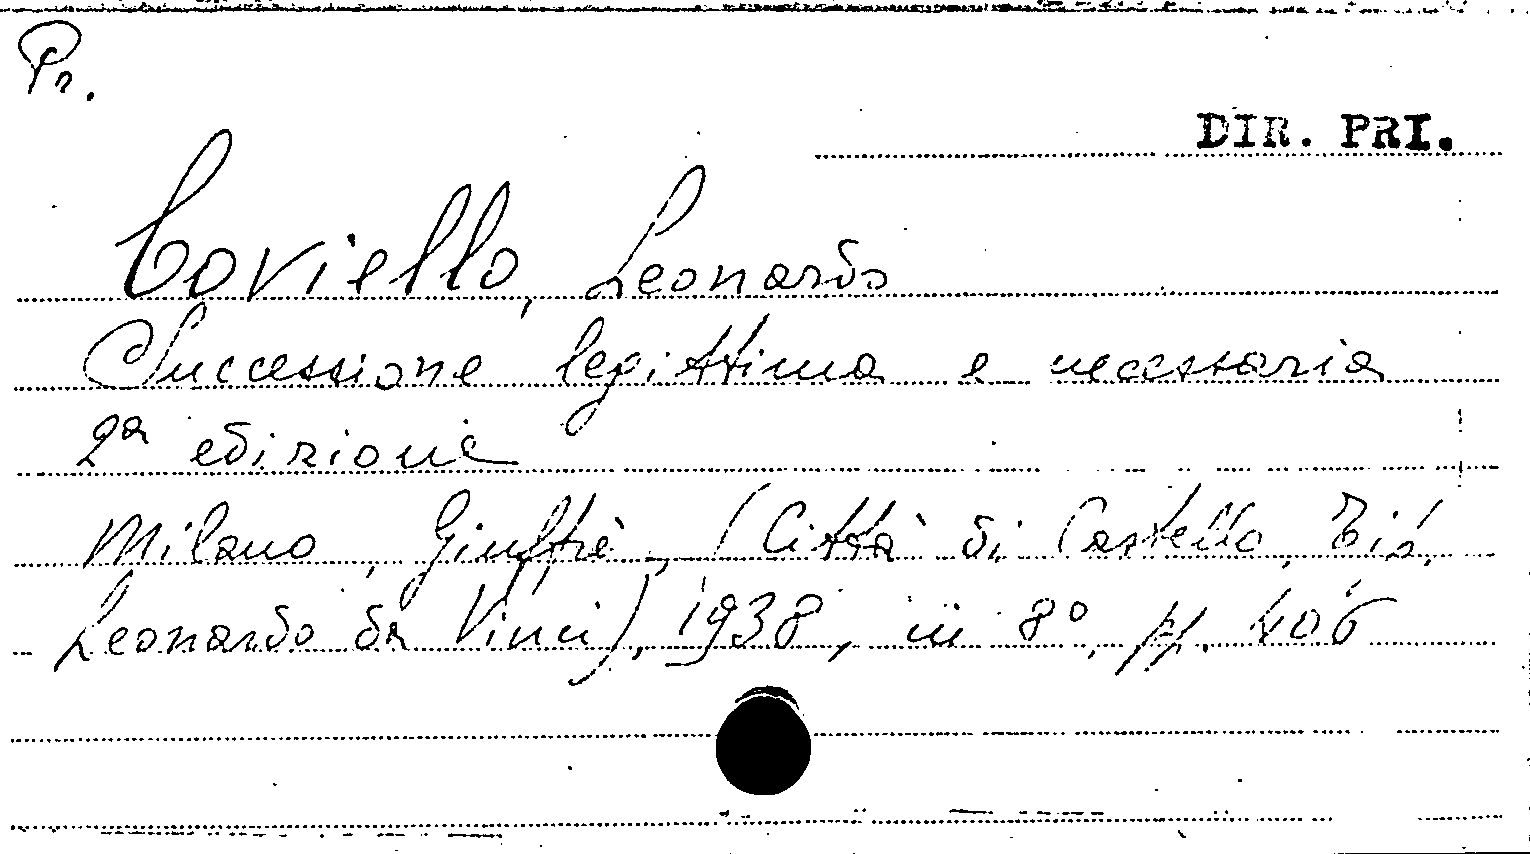 Pr.
DIR. PRI.
Coviello, Leonardo
Successione legittima e necessaria
2ª edizione
Milano, Giuffrè, (Città di Castello, Tip.
Leonardo da Vinci), 1938, in 8º, pp. 406